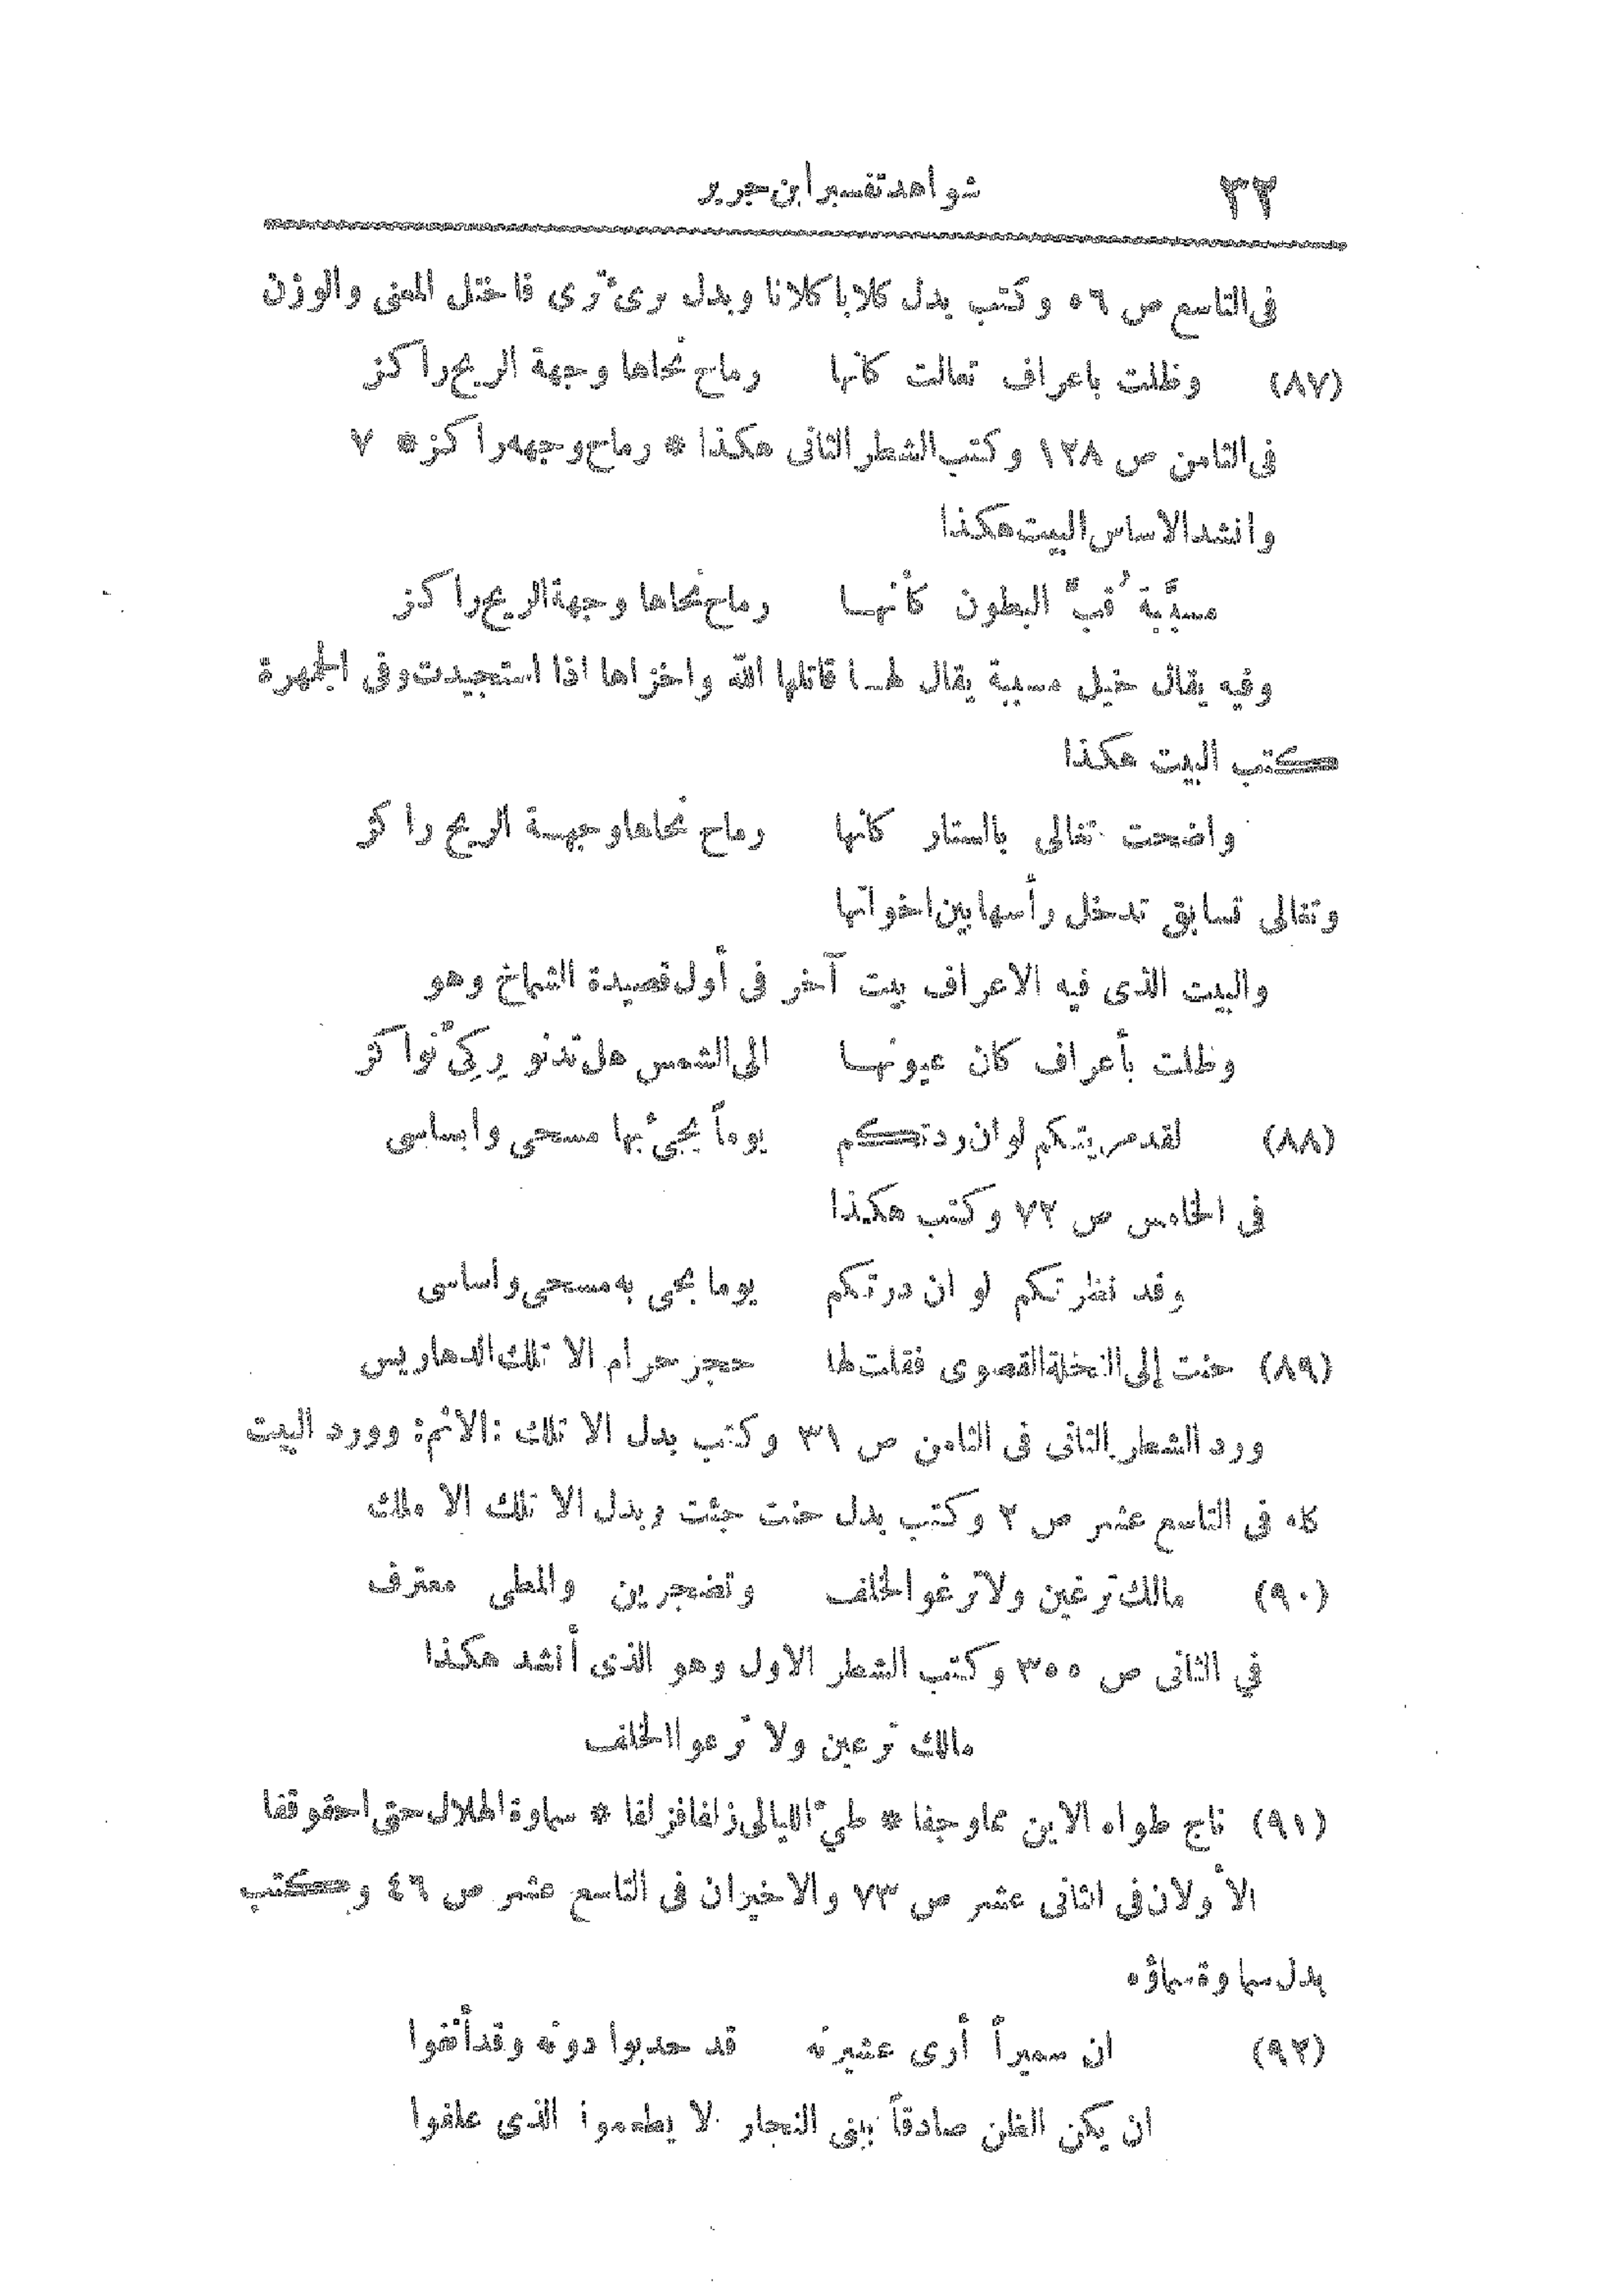 ٣٢ شواهد تفسير ابن جرير
فى التاسع ص ٥٦ وكتب بدل كلابا كلانا وبدل يرى ترى فاختل المعنى والوزن
(٨٧) وظلت باعراف تعالت كأنها رماح نحاها وجهة الريح راكز
فى الثامن ص ١٢٨ وكتب الشطر الثانى هكذا * رماح وجهه راكز * ٧
وانشد الاساس البيت هكذا
مسبَّبة قبّ البطون كأنهـا رماح نحاها وجهة الريح راكز
وفيه يقال خيل مسببة يقال لهـا قاتلها الله واخزاها اذا استجيدت وفى الجمهرة
كتب البيت هكذا
واضحت تغالى بالستار كأنها رماح نحاها وجهـة الريح راكز
وتغالى تسابق تدخل رأسها بين اخواتها
والبيت الذى فيه الاعراف بيت آخر فى أول قصيدة الشماخ وهو
وظلت بأعراف كان عيونهـا الى الشمس هل تدنو رِكِىّ نواكز
(٨٨) لقد مريتكم لو ان ردتكم يوماً يجىء بها مسحى وابساسى
فى الخامس ص ٧٢ وكتب هكذا
وقد نظرتكم لو ان درتكم يوما يجى به مسحى واساسى
(٨٩) حنت إلى النخلة القصوى فقلت لها حجر حرام الا تلك الدهاريس
ورد الشطر الثانى فى الثامن ص ٣١ وكتب بدل الا تلك : الائم : وورد البيت
كله فى التاسع عشر ص ٢ وكتب بدل حنت جئت وبدل الا تلك الا ملك
(٩٠) مالك ترغين ولا ترغو الخلف وتضجرين والمطى معترف
في الثانى ص ٣٥٥ وكتب الشطر الاول وهو الذى أنشد هكذا
مالك ترعين ولا ترعوا الخلف
(٩١) ناج طواه الاين مما وجفا * طيّ الليالى زلفا فزلفا * سماوة الهلال حتى احقوقفا
الأولان فى الثانى عشر ص ٧٣ والاخيران فى التاسع عشر ص ٤٦ وكتب
بدل سماوة سماؤه
(٩٢) ان سميراً أرى عشيرته قد حدبوا دونه وقد أنفوا
ان يكن الظن صادقاً ببنى النجار لا يطعموا الذى علفوا